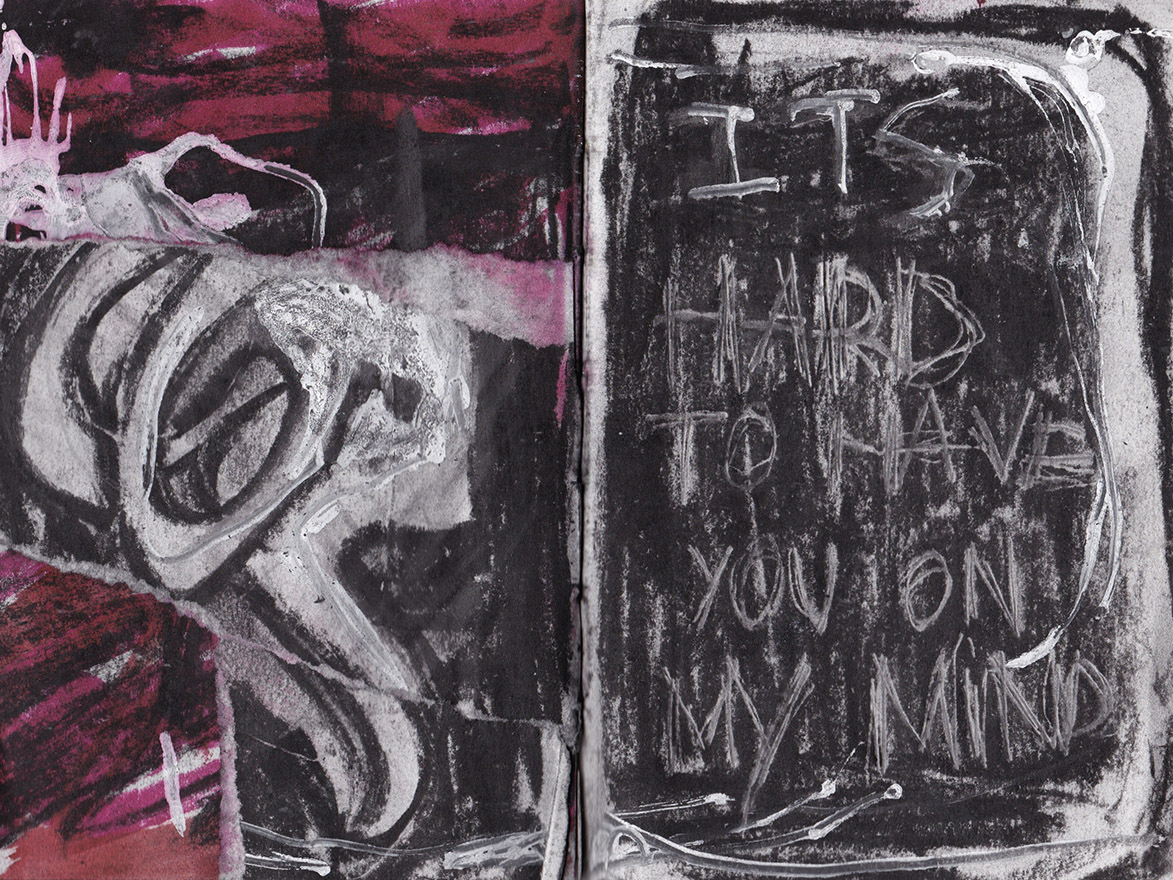 ITS
HARD
TO HAVE
YOU ON
MY MIND